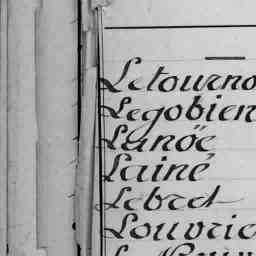 Letourno
Legobien
Lanöe
Lainé
Lebret
Louvrie